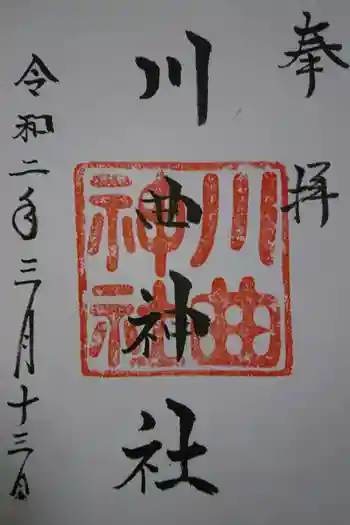 奉拝
川曲神社
川曲神社
令和二年三月十三日